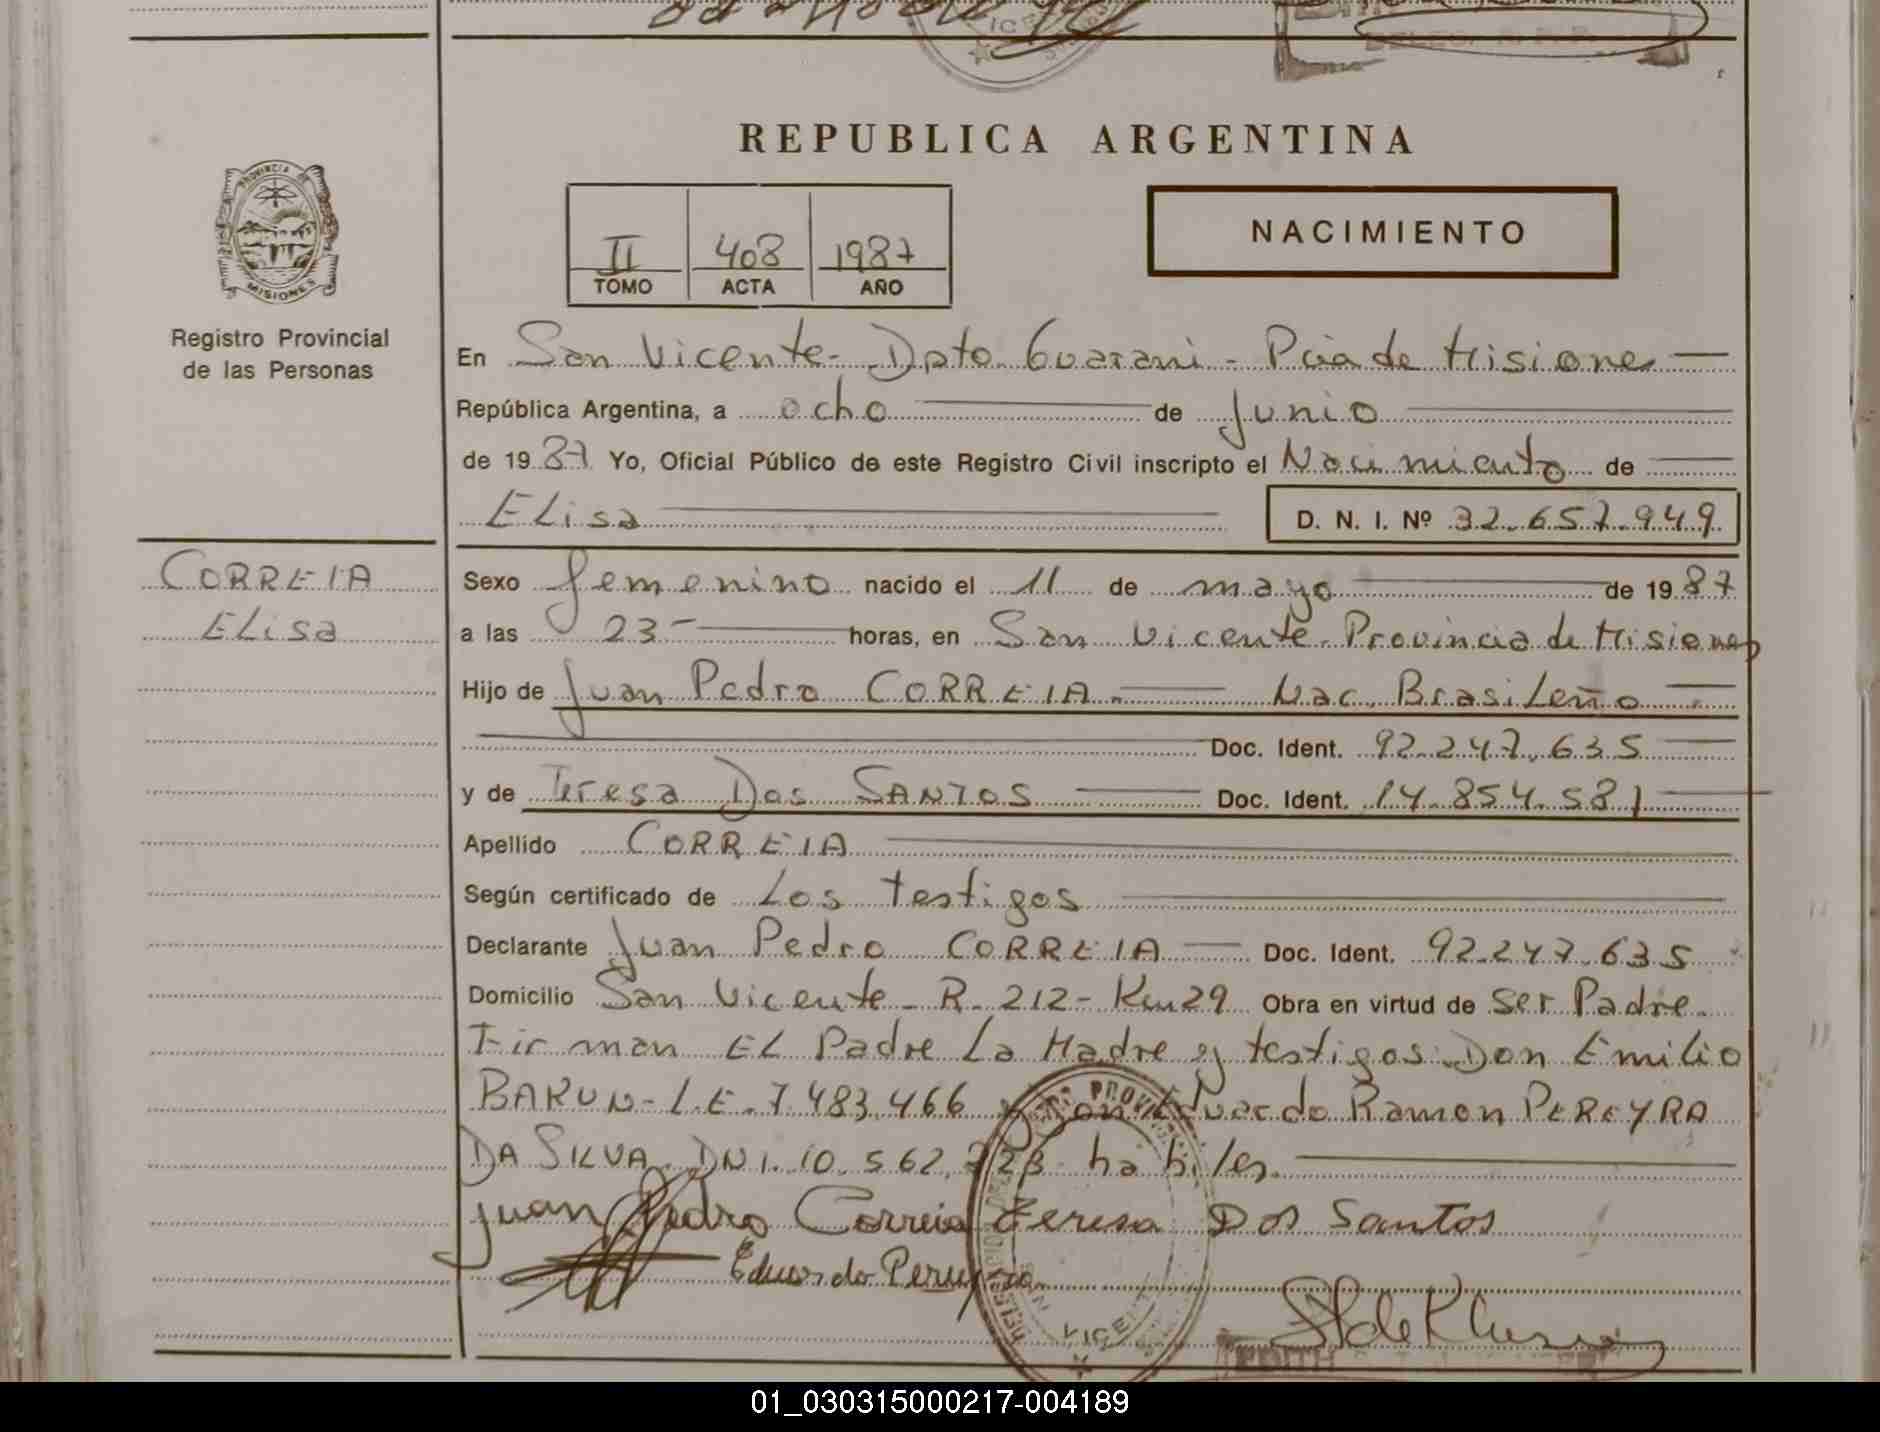 REPUBLICA ARGENTINA
PROVINCIA DE
MISIONES
Registro Provincial
de las Personas
II 408 1987
TOMO ACTA AÑO
NACIMIENTO
En San Vicente - Dpto Guarani - Pcia de Misiones
República Argentina, a ocho de Junio
de 1987 Yo, Oficial Público de este Registro Civil inscripto el Nacimiento de
Elisa D. N. I. Nº 32.657.949
CORREIA
Elisa
Sexo femenino nacido el 11 de mayo de 1987
a las 23 - horas, en San Vicente - Provincia de Misiones
Hijo de Juan Pedro CORREIA - Nac. Brasileño
Doc. Ident. 92.247.635
y de Teresa Dos SANTOS Doc. Ident. 14.854.581
Apellido CORREIA
Según certificado de Los testigos
Declarante Juan Pedro CORREIA Doc. Ident. 92.247.635
Domicilio San Vicente - R. 212 - Km 29 Obra en virtud de ser Padre.
Firman El Padre La Madre y testigos Don Emilio
BARUN - L.E. 7.483.466 y Don Eduardo Ramon PEREYRA
DA SILVA DNI. 10.562. habiles.
Juan Pedro Correia Teresa Dos Santos
Eduardo Pereyra
01_030315000217-004189